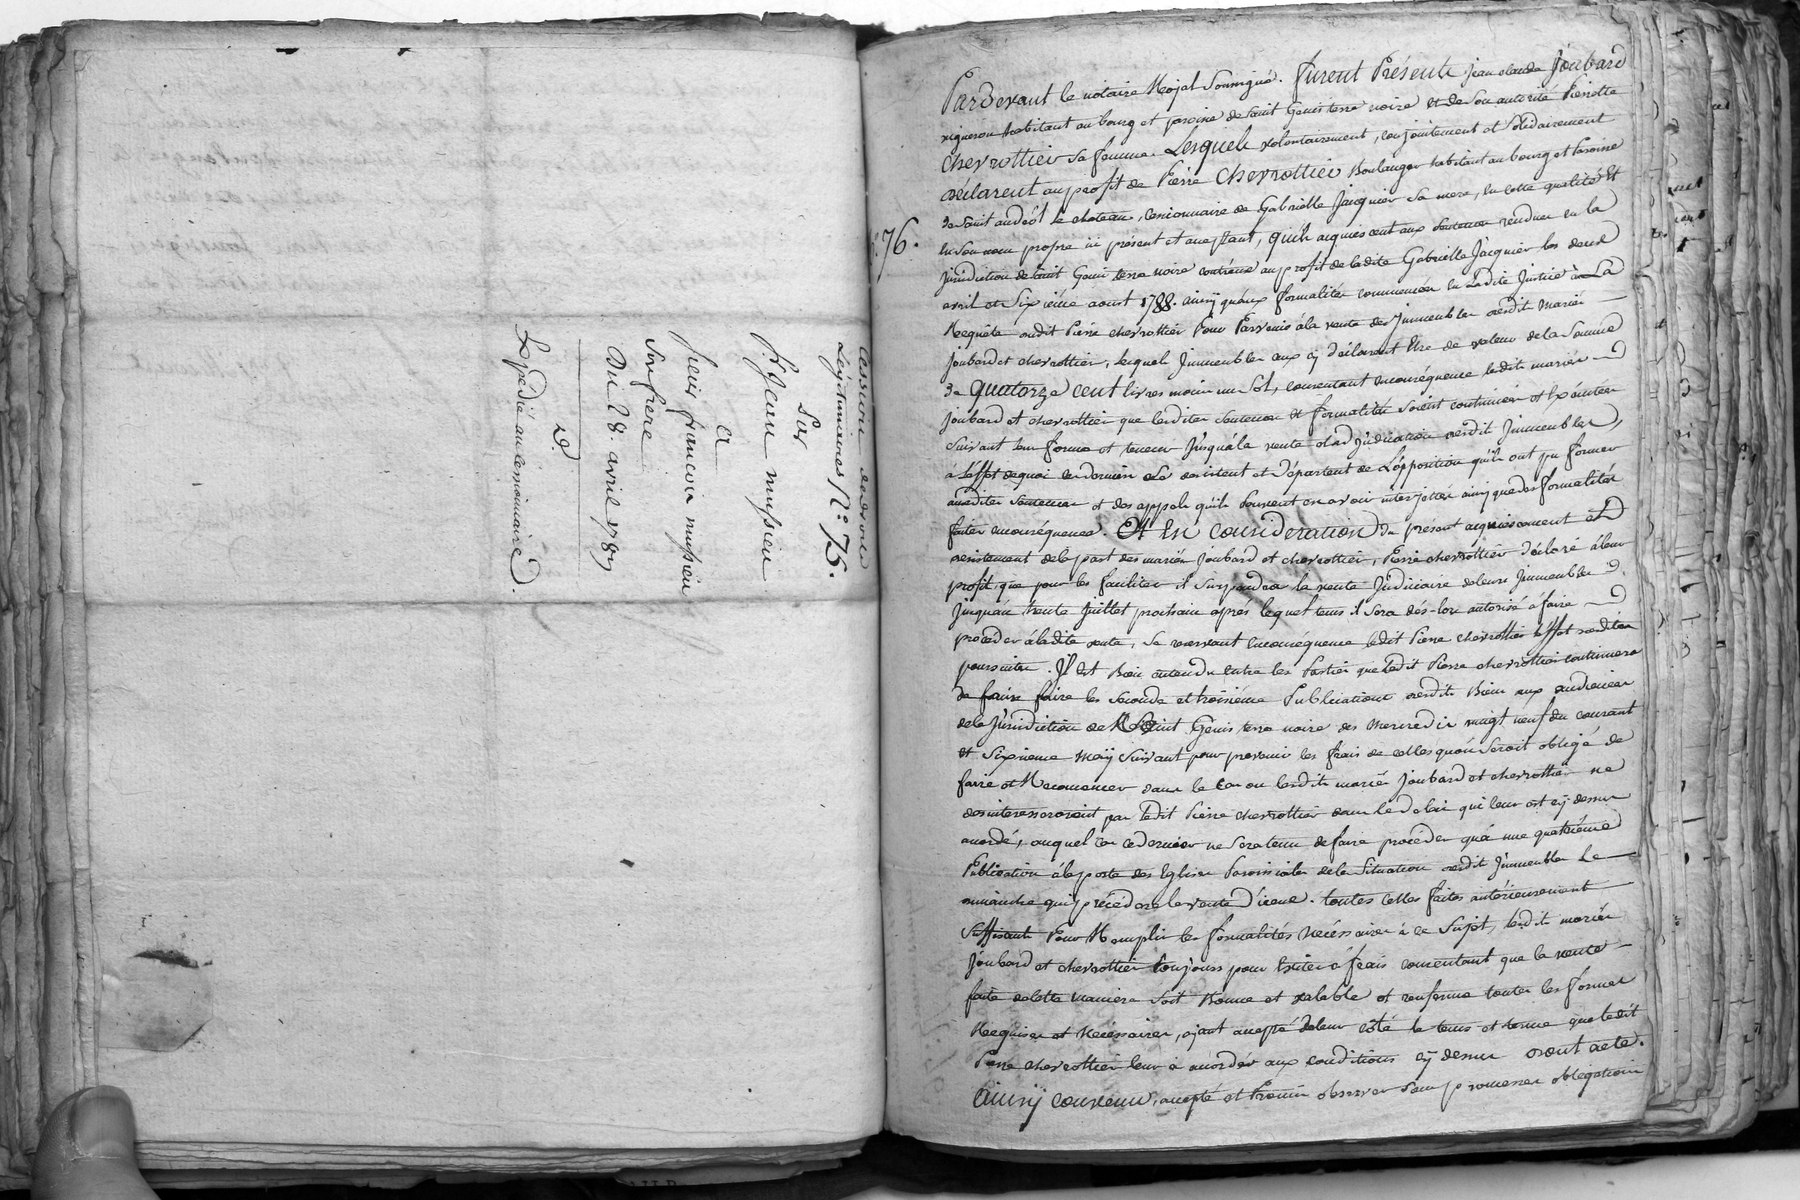 Cession de droits
Légitimaires N.° 75.
Par
Sr. Jean mussieu
a
Sieur françois mussieu
Son frere
Du 28. avril 1789
Expédié au cessionnaire
N.° 76.
Pardevant le notaire Royal Soussigné. furent Présents jean claude Joubard
vigneron habitant au bourg et paroisse de Saint Genis terre noire et de Son autorité Pierrette
Chevrottier Sa femme. Lesquels volontairement, conjointement et Solidairement
déclarent au profit de Pierre Chevrottier Boulanger habitant au bourg et Paroisse
de Saint andéol le chateau, Cessionnaire de Gabrielle Jacquier Sa mere, en cette qualité et
en Son nom propre ici présent et acceptant, qu'ils acquiescent aux Sentences rendues en la
Jurisdiction de Saint Genis terre noire contr'eux au profit de ladite Gabrielle Jacquier les deux
avril et Sixieme aoust 1788. ainsÿ qu'aux formalités commencées en Ladite Justice à La
Requête dudit Pierre chevrottier Pour Parvenir à la vente des Immeubles desdits Mariés
Joubard et chevrottier, lesquels Immeubles eux cÿ déclarent Etre de valeur de la Somme
de quatorze cent livres moins un Sol, consentant en conséquence lesdits mariés
Joubard et chevrottier que lesdites Sentences et formalités Soient continuées et Exécutées
Suivant leur forme et teneur Jusqu'à la vente et adjudication desdits Immeubles,
à L'effet de quoi ces derniers Se désistent et Départent de L'opposition qu'ils ont pu former
auxdites Sentences et des appels qu'ils Peuvent en avoir interjettés ainsÿ que des formalités
faites en conséquence. Et En consideration du présent acquiescement et
désistement de la part des mariés Joubard et chevrottier, Pierre chevrottier déclare à leur
profit, que pour les faciliter il Surpendra la vente Judiciaire de leurs Immeubles
Jusqu'au trente Juillet prochain après lequel tems il Sera dès-lors autorisé à faire
procéder à ladite vente, Se réservant en conséquence ledit Pierre chevrottier l'effet desdites
poursuites. Il Est Bien entendu entre les Parties que Ledit Pierre chevrottier continuera
de faire faire les Seconde et troisième Publications desdits Biens aux audiences
de la Jurisdiction de Saint Genis terre noire des Mercredis vingt neuf du courant
et Sixieme Maÿ Suivant pour prévenir les frais de celles qu'on Seroit obligé de
faire et Recommencer dans le Cas ou lesdits mariés Joubard et chevrottier ne
désinteresseroient pas Ledit Pierre chevrottier dans le délai qui leur est cÿ-dessus
accordé, auquel cas ce dernier ne Sera tenu de faire procéder qu'à une quatrième
Publication à la porte des Eglises Paroissiales de la Situation desdits Immeubles Le
dimanche qui précédera la vente d'iceux. toutes celles faites antérieurement
Suffisant Pour Remplir les formalités Nécessaires à ce Sujet, lesdits mariés
Joubard et chevrottier toujours pour Eviter à frais consentant que la vente
faite de cette maniere Soit Bonne et valable et renferme toutes les formes
Requises et Nécessaires, ayant accepté de leur côté le tems et terme que ledit
Pierre chevrottier leur a accordés aux conditions cÿ dessus dont acte.
Ainsÿ convenu, accepté et Promis observer Sous promesses obligations